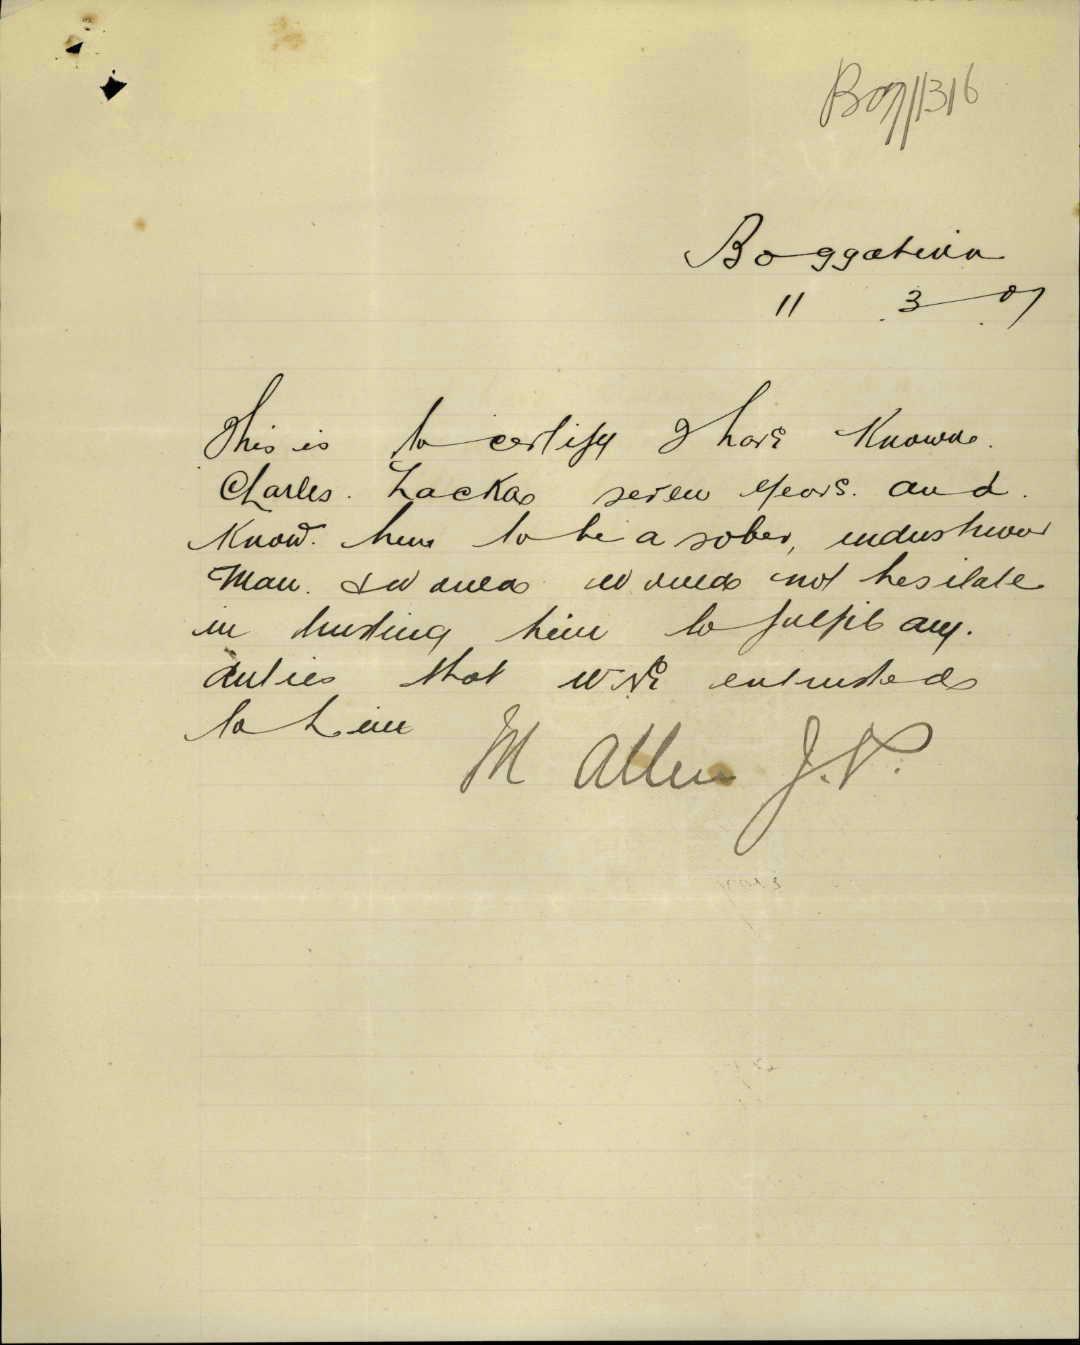 B07/1316
Boggabri
11 3 07
This is to certify I have Known
Charles. Lacka seven years. and
Know. him to be a sober, industrious
Man. & would not hesitate
in trusting him to fulfil any.
duties that were entrusted
to him
M Allen J.P.